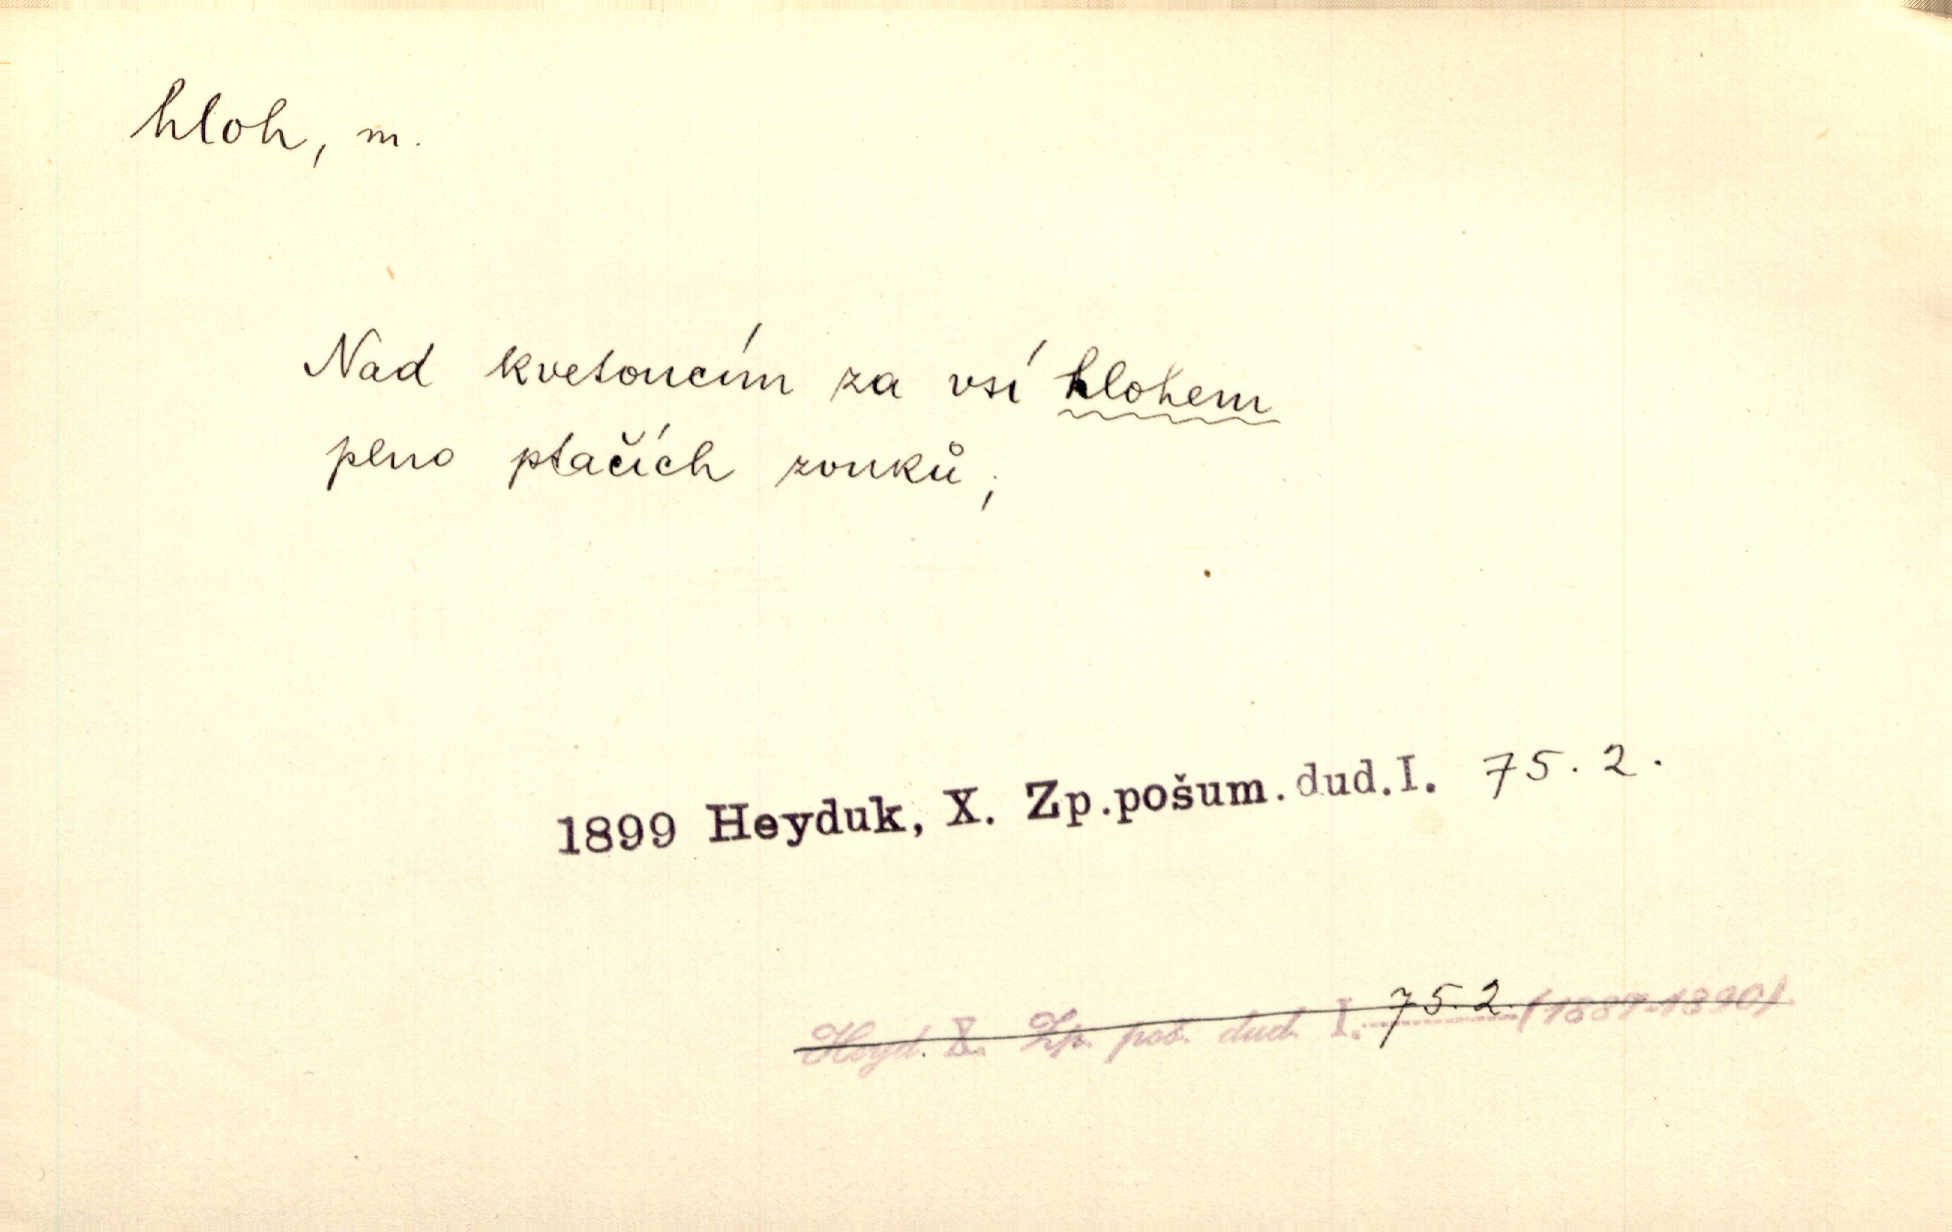 hloh, m.
Nad kvetoucím za vsí hlohem
plno ptačích zvuků;
1899 Heyduk, X. Zp.pošum.dud.I. 75.2.
Heyd. X. Zp. poš. dud. I. 75.2. (1887-1890).